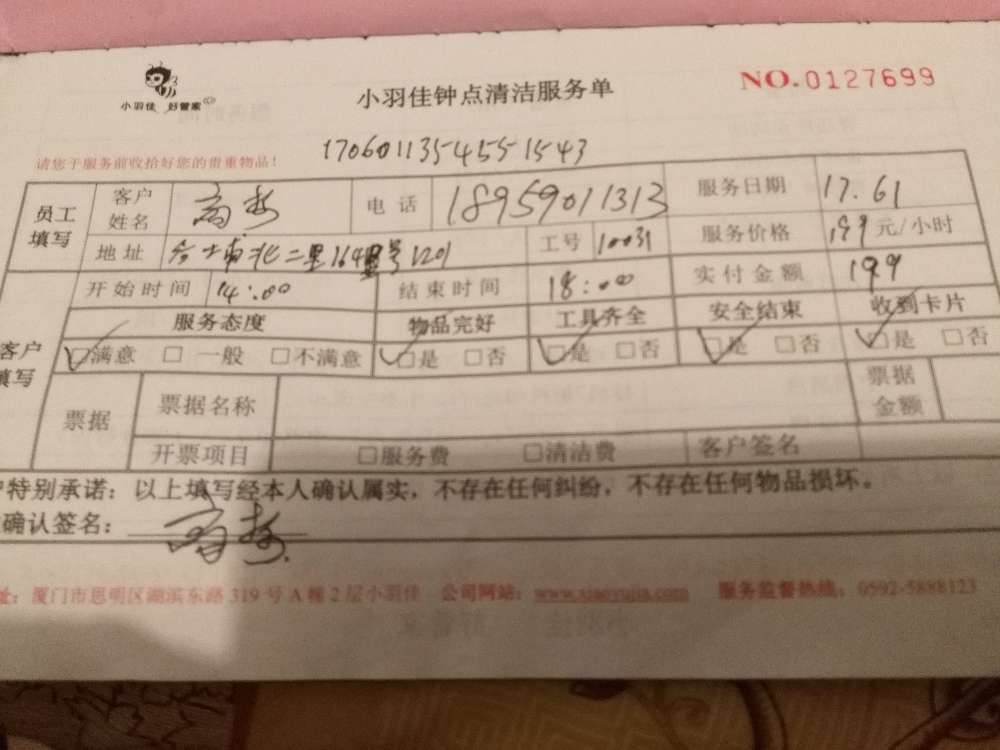 小羽佳 好管家
小羽佳钟点清洁服务单
NO.0127699
请您于服务前收拾好您的贵重物品!
1706011354551543
员工填写 客户姓名 高 电话 18959011313 服务日期 17.61
地址 北二里164号1201 工号 10031 服务价格 199 元/小时
开始时间 14:00 结束时间 18:00 实付金额 199
客户填写 服务态度 物品完好 工具齐全 安全结束 收到卡片
☑满意 □ 一般 □不满意 ☑是 □否 ☑是 □否 ☑是 □否 ☑是 □否
票据 票据名称 票据金额
开票项目 □服务费 □清洁费 客户签名
户特别承诺：以上填写经本人确认属实，不存在任何纠纷，不存在任何物品损坏。
确认签名： 高
址：厦门市思明区湖滨东路 319 号 A 幢 2 层小羽佳 公司网站： 服务监督热线：0592-5888123